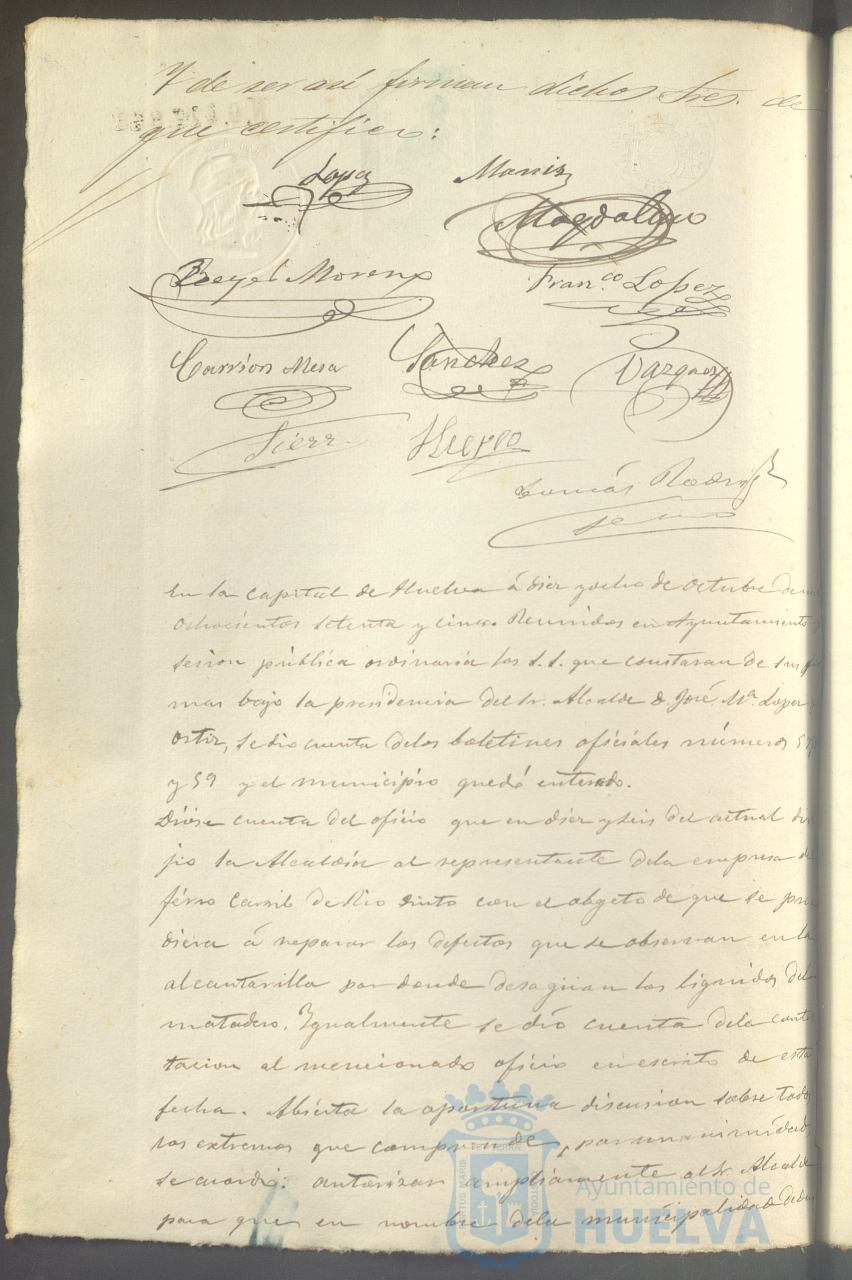 Y de ser así firman dichos Sres. de
que certifico:
Lopez
Magdaleno
Reyel Moreno
Fran.co Lopez
Carrion Mesa
Sanchez
Vazquez
Sierr
Tomás Rodrig
En la capital de Huelva á diez y ocho de Octubre de m
ochocientos setenta y cinco. Reunidos en Ayuntamiento
sesion pública ordinaria los S.S. que constaran de sus fir
mas bajo la presidencia del Sr. Alcalde D. José M.a Lopez
Ortiz, se dio cuenta de los boletines oficiales números
y 59 y el municipio quedó enterado.
Dióse cuenta del oficio que en diez y seis del actual diri
jio la Alcaldía al representante dela empresa del
férro Carril de Rio tinto con el obgeto de que se proce
diera á reparar los defectos que se observan en la
alcantarilla por donde desagüan los liquidos del
matadero. Igualmente se dió cuenta dela contes
tacion al mencionado oficio en escrito de esta
fecha. Abierta la oportuna discusion sobre todos
los extremos que comprende, por unanimidad
se acordó: autorizar ampliamente al Sr. Alcalde
para que en nombre dela municipalidad
Ayuntamiento de
HUELVA